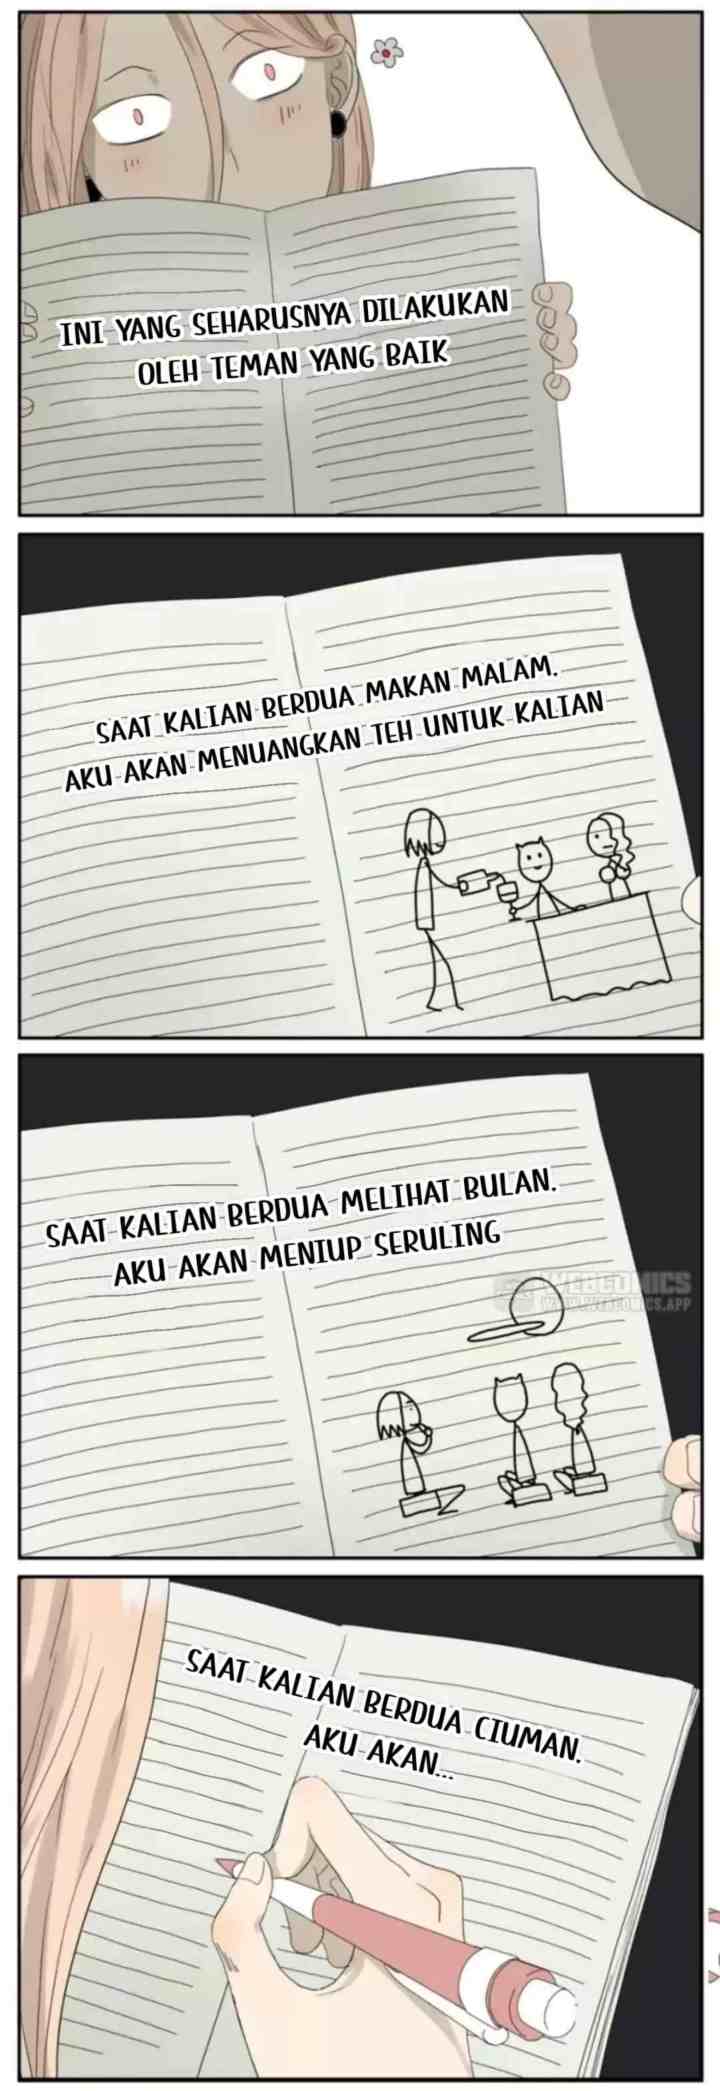 INI YANG SEHARUSNYA DILAKUKAN
OLEH TEMAN YANG BAIK
SAAT KALIAN BERDUA MAKAN MALAM.
AKU AKAN MENUANGKAN TEH UNTUK KALIAN
SAAT KALIAN BERDUA MELIHAT BULAN.
AKU AKAN MENIUP SERULING
WEBCOMICS
WWW.WEBCOMICS.APP
SAAT KALIAN BERDUA CIUMAN.
AKU AKAN...